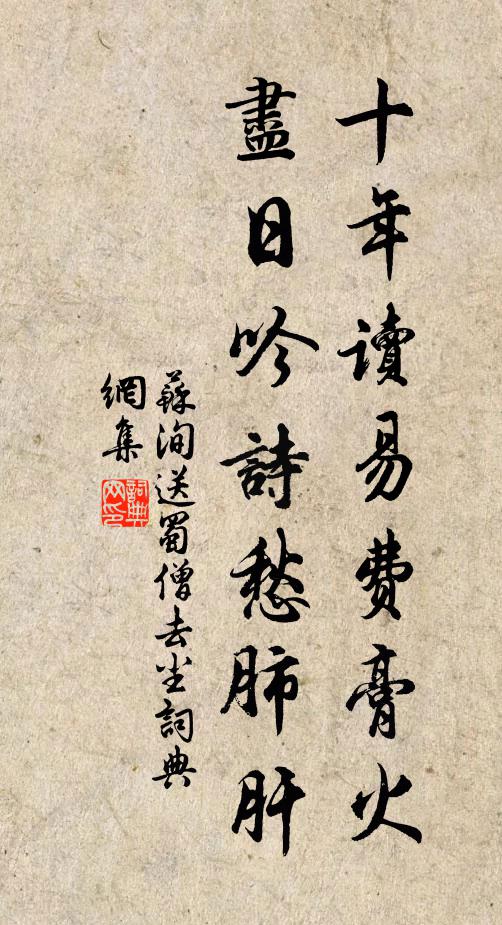 十年讀易費膏火
盡日吟詩愁肺肝
蘇洵送蜀僧去尘詞典
網集
詞典網印